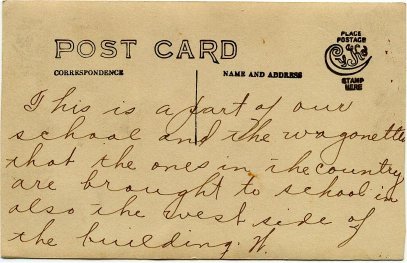 POST CARD
CORRESPONDENCE
NAME AND ADDRESS
PLACE
POSTAGE
CYKO
STAMP
HERE
This is a part of our
school and the wagonette
that the ones in the country
are brought to school in
also the west side of
the building. W.